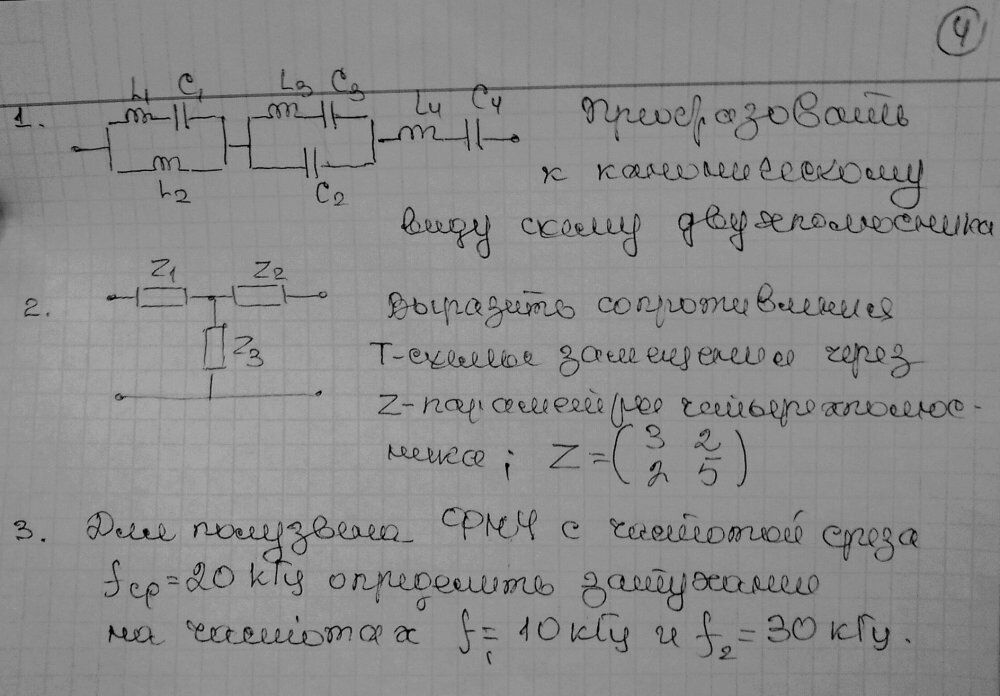 4
L1 C1 L3 C3 L4 C4
1. Преобразовать
L2 C2 к каноническому
виду схему двухполюсника
Z1 Z2
2. Выразить сопротивления
Z3 Т-схемы замещения через
Z-параметры четырехполюс-
ника; Z = (3 2
2 5)
3. Для полузвена ФНЧ с частотой среза
fср = 20 кГц определить затухание
на частотах f1 = 10 кГц и f2 = 30 кГц.